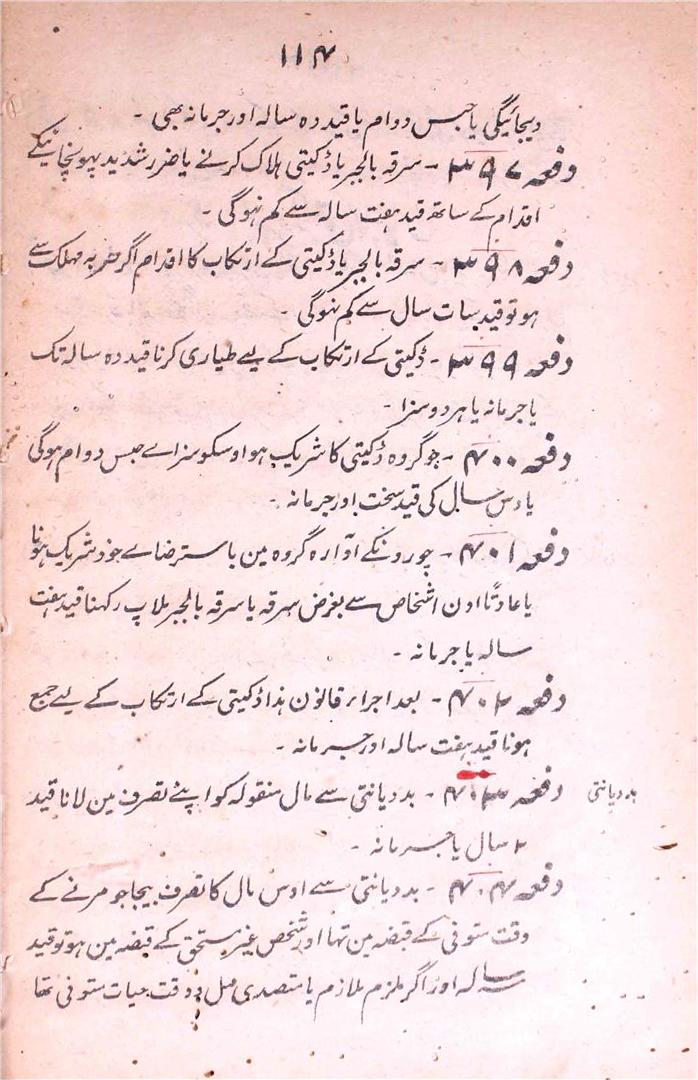 ۱۱۴
دیجائیگی یا حبس دوام یا قید دہ سالہ اور جرمانہ بھی ۔
دفعہ ۳۹۷ ۔ سرقہ بالجبر یا ڈکیتی ہلاک کرنے یا ضرر شدید پہونچانیکے
اقدام کے ساتھ قید ہفت سالہ سے کم نہوگی ۔
دفعہ ۳۹۸ ۔ سرقہ بالجبر یا ڈکیتی کے ارتکاب کا اقدام اگر حربہ مہلک سے
ہو تو قید سات سال سے کم نہوگی ۔
دفعہ ۳۹۹ ۔ ڈکیتی کے ارتکاب کے لیے طیاری کرنا قید دہ سالہ تک
یا جرمانہ یا ہر دو سزا ۔
دفعہ ۴۰۰ ۔ جو گروہ ڈکیتی کا شریک ہو اوسکو سزاے حبس دوام ہوگی
یا دس سال کی قید سخت اور جرمانہ ۔
دفعہ ۴۰۱ ۔ چورونکے آوارہ گروہ مین باسترضاے خود شریک ہونا
یا عادتًا اون اشخاص سے بغرض سرقہ یا سرقہ بالجبر ملاپ رکھنا قید ہفت
سالہ یا جرمانہ ۔
دفعہ ۴۰۲ ۔ بعد اجراء قانون ہذا ڈکیتی کے ارتکاب کے لیے جمع
ہونا قید ہفت سالہ اور جرمانہ ۔
بددیانتی
دفعہ ۴۰۳ ۔ بددیانتی سے مال منقولہ کو اپنے تصرف مین لانا قید
۲ سال یا جرمانہ ۔
دفعہ ۴۰۴ ۔ بددیانتی سے اوس مال کا تصرف بیجا جو مرنے کے
وقت متوفی کے قبضہ مین تھا اور شخص غیر مستحق کے قبضہ مین ہو تو قید
سہ سالہ اور اگر ملزم ملازم یا متصدی وقت حیات متوفی تھا